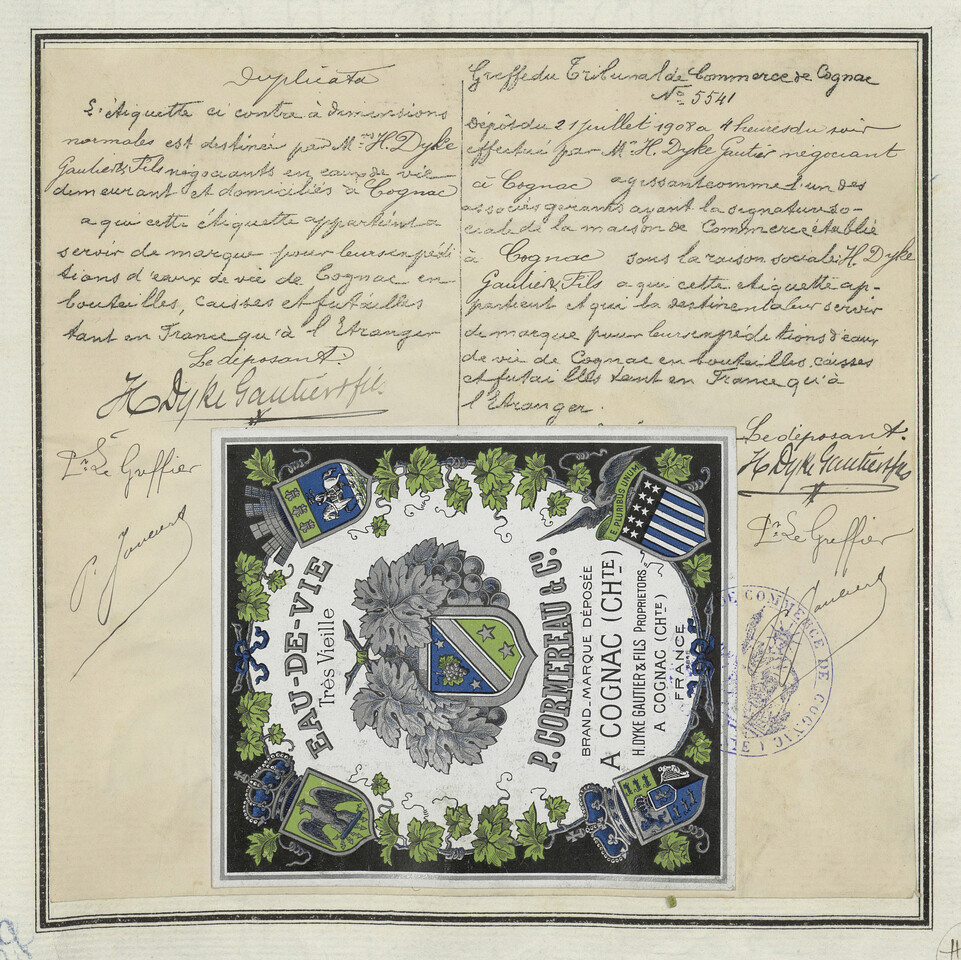 Duplicata
L'étiquette ci contre à dimensions
normales est destinée par Mrs H. Dyke
Gautier & Fils négociants en eaux de vie
demeurant et domiciliés à Cognac
a qui cette étiquette appartient a
servir de marque pour leurs expédi
tions d'eaux de vie de Cognac en
bouteilles, caisses et futailles
tant en France qu'à l'Etranger
Le déposant
H Dyke Gautier & fils
Pr Le Greffier
Greffe du Tribunal de Commerce de Cognac
No 5541
Dépôt du 21 juillet 1908 a 4 heures du soir
effectué par Mr H. Dyke Gautier négociant
à Cognac agissant comme l'un des
associés gerants ayant la signature so-
ciale de la maison de Commerce établie
à Cognac sous la raison sociale H. Dyke
Gautier & Fils a qui cette étiquette ap-
partient et qui la destinent a leur servir
de marque pour leurs expéditions d'eaux
de vie de Cognac en bouteilles, caisses
et futailles tant en France qu'à
l'Etranger.
Le déposant.
H Dyke Gautier & fils
Pr Le Greffier
EAU-DE-VIE
Très Vieille
P. CORMEREAU & Co.
BRAND_MARQUE DÉPOSÉE
A COGNAC (CHTE)
H. DYKE GAUTIER & FILS PROPRIETORS
A COGNAC (CHTE)
FRANCE
E PLURIBUS UNUM
DE COMMERCE DE COGNAC